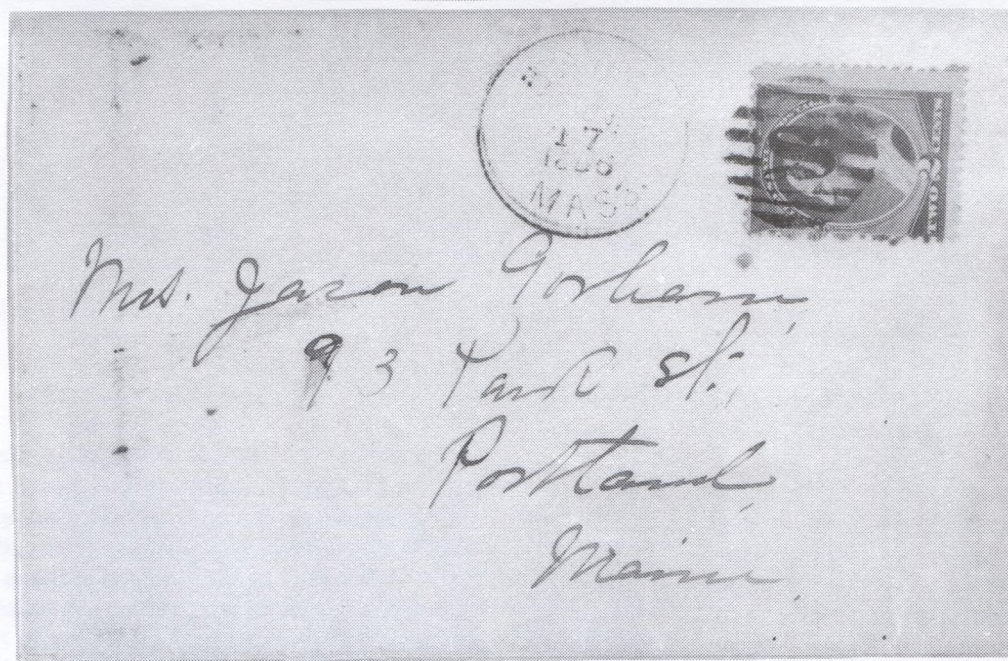 17
1886
MASS.
TWO CENTS
Mrs. Jason Gorham,
93 Park St.,
Portland,
Maine.